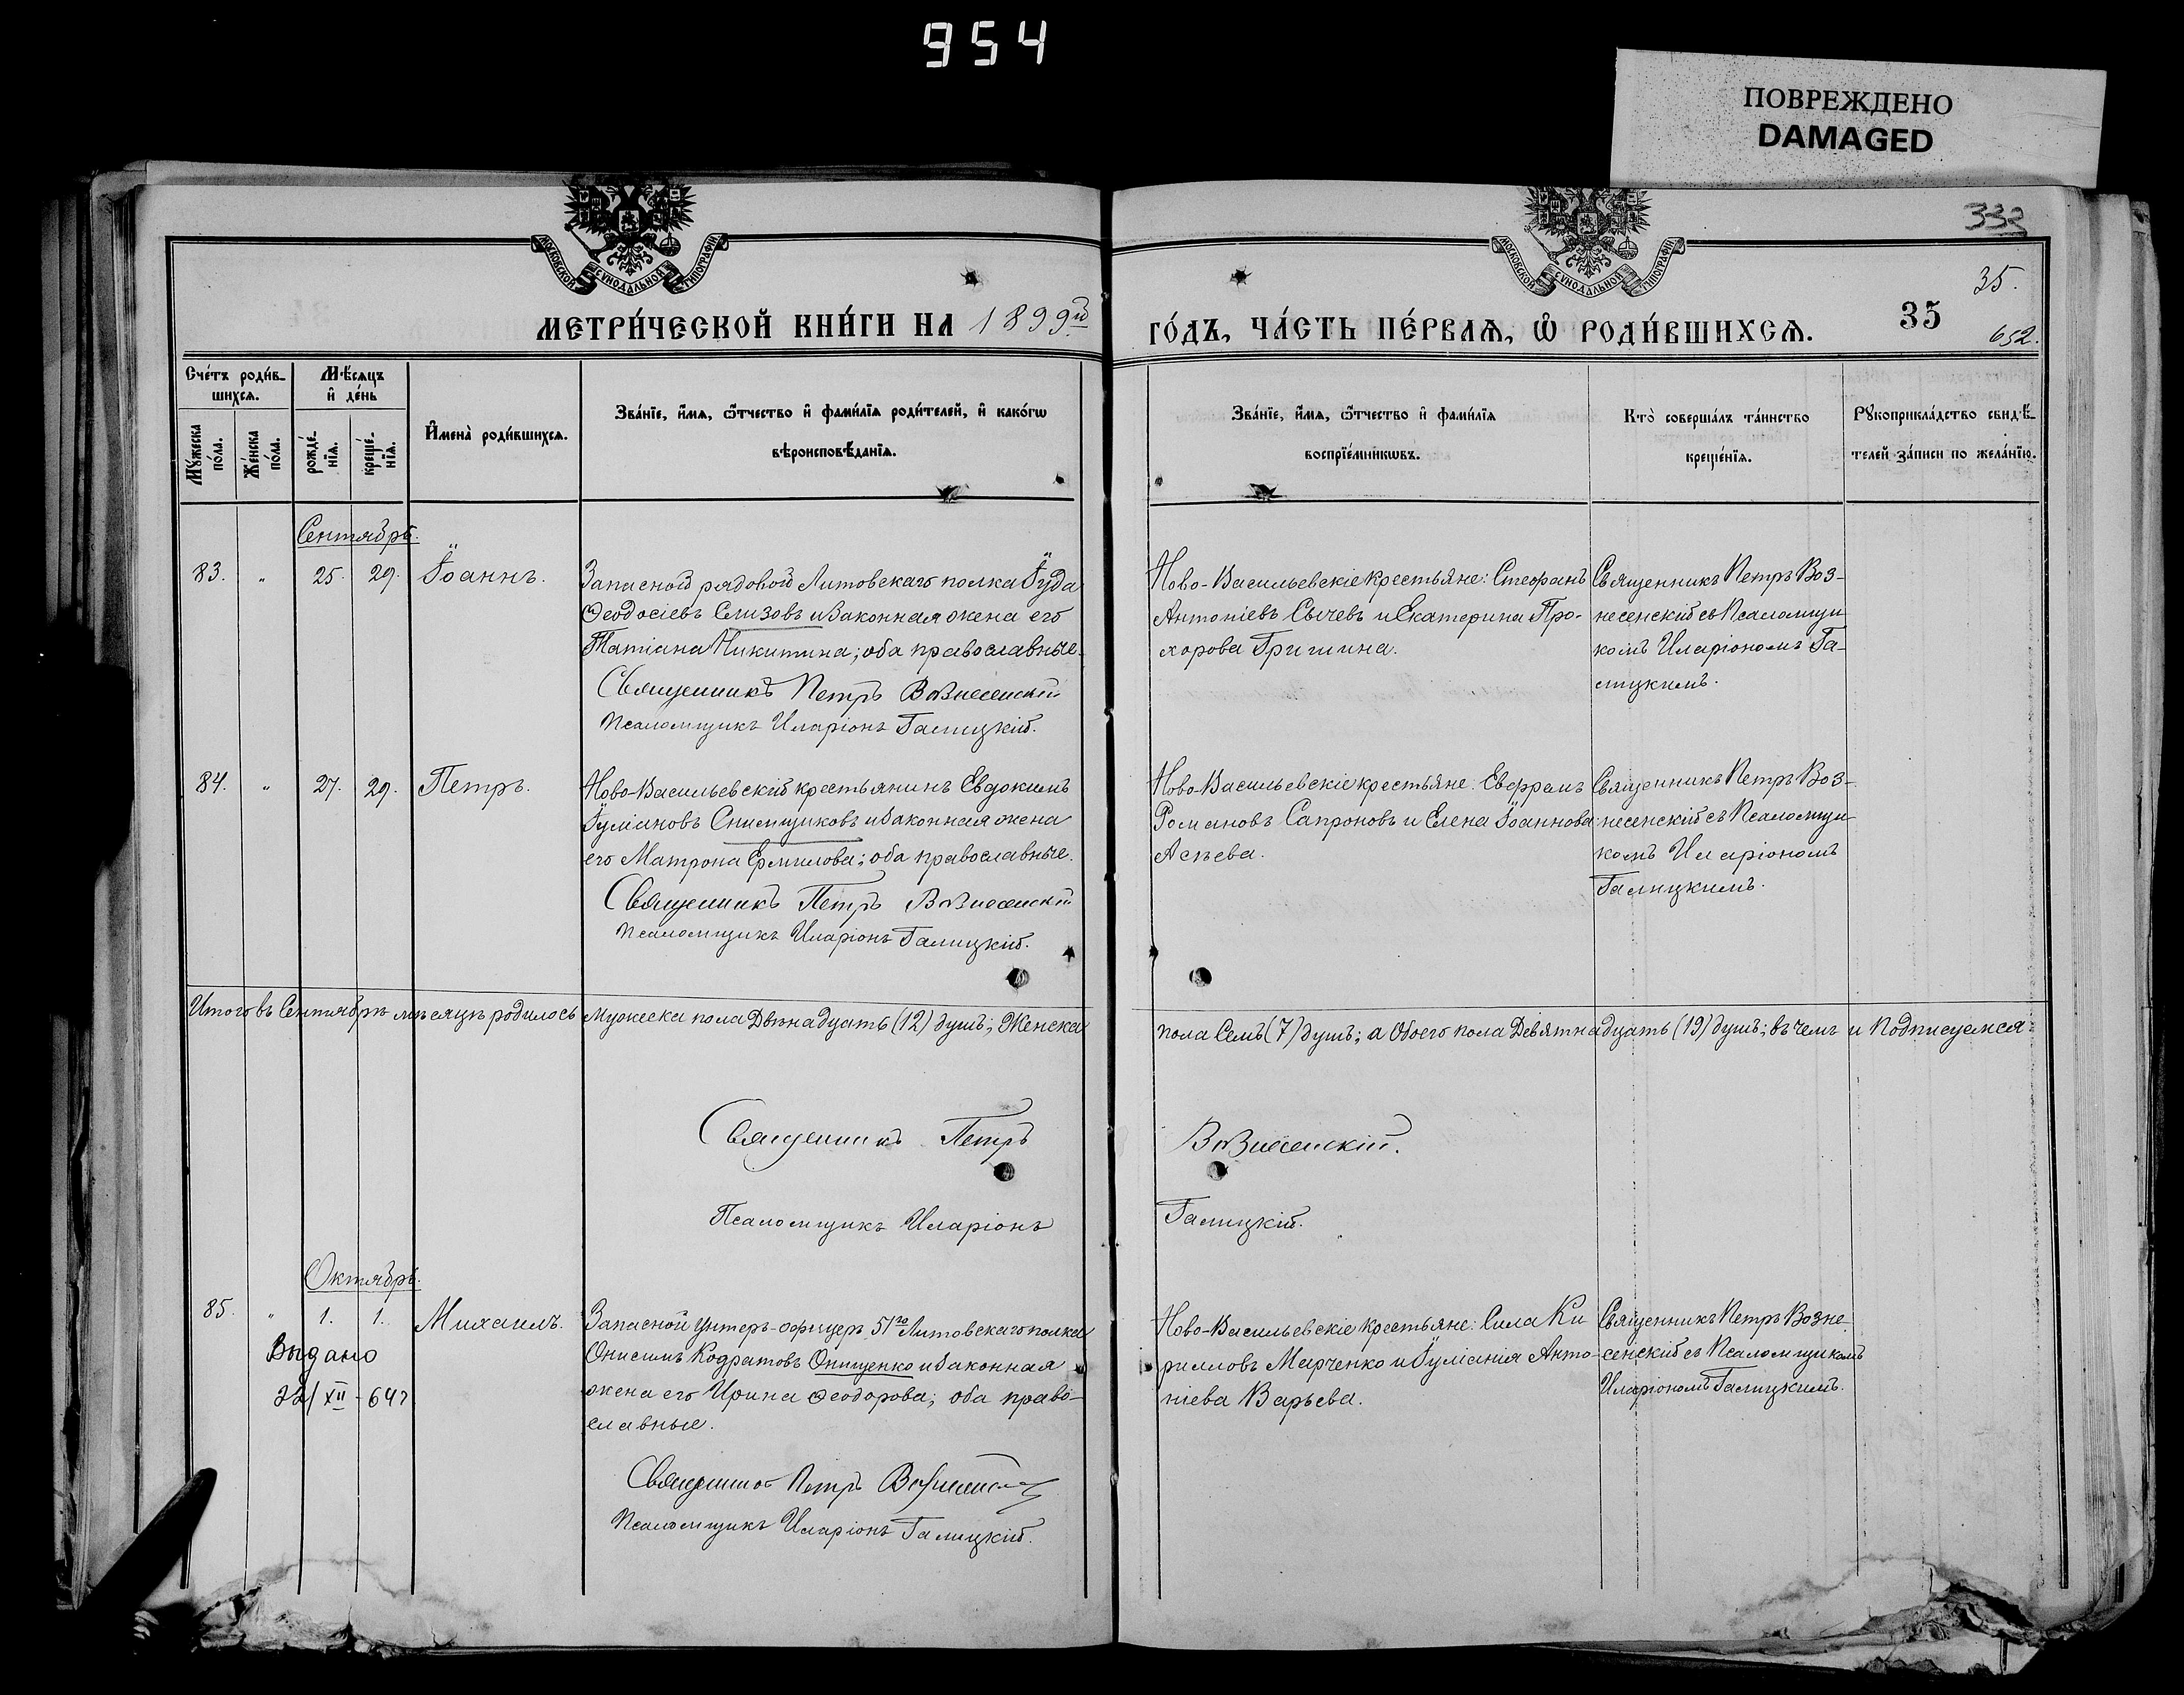 954
ПОВРЕЖДЕНО
DAMAGED
333
МОСКОВСКОЙ СУНОДАЛЬНОЙ ТИПОГРАФІИ
МОСКОВСКОЙ СУНОДАЛЬНОЙ ТИПОГРАФІИ
35.
МЕТРИ́ЧЕСКОЙ КНИ́ГИ НА 1899й
ГО́ДЪ, ЧА́СТЬ ПЕ́РВАѦ, Ѡ҆ РОДИ́ВШИХСѦ.
35
652.
Сче́тъ роди́в-
шихсѧ.
Мѣ́сѧцъ
и҆ де́нь
Мꙋ́жеска
по́ла.
Же́нска
по́ла.
рожде́-
нїѧ.
креще́-
нїѧ.
И҆мена̀ роди́вшихсѧ.
Зва́нїе, и҆́мѧ, ѻ҆́тчество и҆ фами́лїѧ роди́телей, и҆ како́гѡ
вѣроисповѣ́данїѧ.
Зва́нїе, и҆́мѧ, ѻ҆́тчество и҆ фами́лїѧ
воспрїе́мникѡвъ.
Кто̀ соверша́лъ та́инство
креще́нїѧ.
Рꙋкоприкла́дство свидѣ́-
телей за́писи по жела́нїю.
Сентябрь.
83. " 25. 29. Іоаннъ.
Запасной рядовой Литовскаго полка Іуда
Ѳеодосіевъ Слизовъ и законная жена его
Татіана Никитина; оба православные.
Священникъ Петръ Вознесенскій
Псаломщикъ Иларіонъ Галицкій.
Ново-Васильевскіе крестьяне: Стефанъ
Антоніевъ Сычевъ и Екатерина Про-
хорова Гришина.
Священникъ Петръ Воз-
несенскій съ Псаломщи
комъ Иларіономъ Га-
лицкимъ.
84. " 27. 29. Петръ.
Ново-Васильевскій крестьянинъ Евдокимъ
Іуліановъ Снимщиковъ и законная жена
его Матрона Ермилова; оба православные.
Священникъ Петръ Вознесенскій
Псаломщикъ Иларіонъ Галицкій.
Ново-Васильевскіе крестьяне: Евфремъ
Романовъ Сапроновъ и Елена Іоаннова
Асѣева.
Священникъ Петръ Воз-
несенскій съ Псаломщи
комъ Иларіономъ
Галицкимъ.
Итого въ Сентябрѣ мѣсяцѣ родилось Мужеска пола Двѣнадцать (12) душъ; Женска
пола Семь (7) душъ; а Обоего пола Девятнадцать (19) душъ; въ чемъ и Подписуемся
Священникъ Петръ
Вознесенскій.
Псаломщикъ Иларіонъ
Галицкій.
Октябрь.
85. " 1. 1. Михаилъ.
Выдано
22/XII-647
Запасной унтеръ-офицеръ 51го Литовскаго полка
Онисимъ Кодратовъ Онищенко и законная
жена его Ирина Ѳеодорова; оба право-
славные.
Священникъ Петръ Вознесенскій
Псаломщикъ Иларіонъ Галицкій.
Ново-Васильевскіе крестьяне: Сила Ки
рилловъ Марченко и Іуліанія Анто-
ніева Варьева.
Священникъ Петръ Возне
сенскій съ Псаломщикомъ
Иларіономъ Галицкимъ.